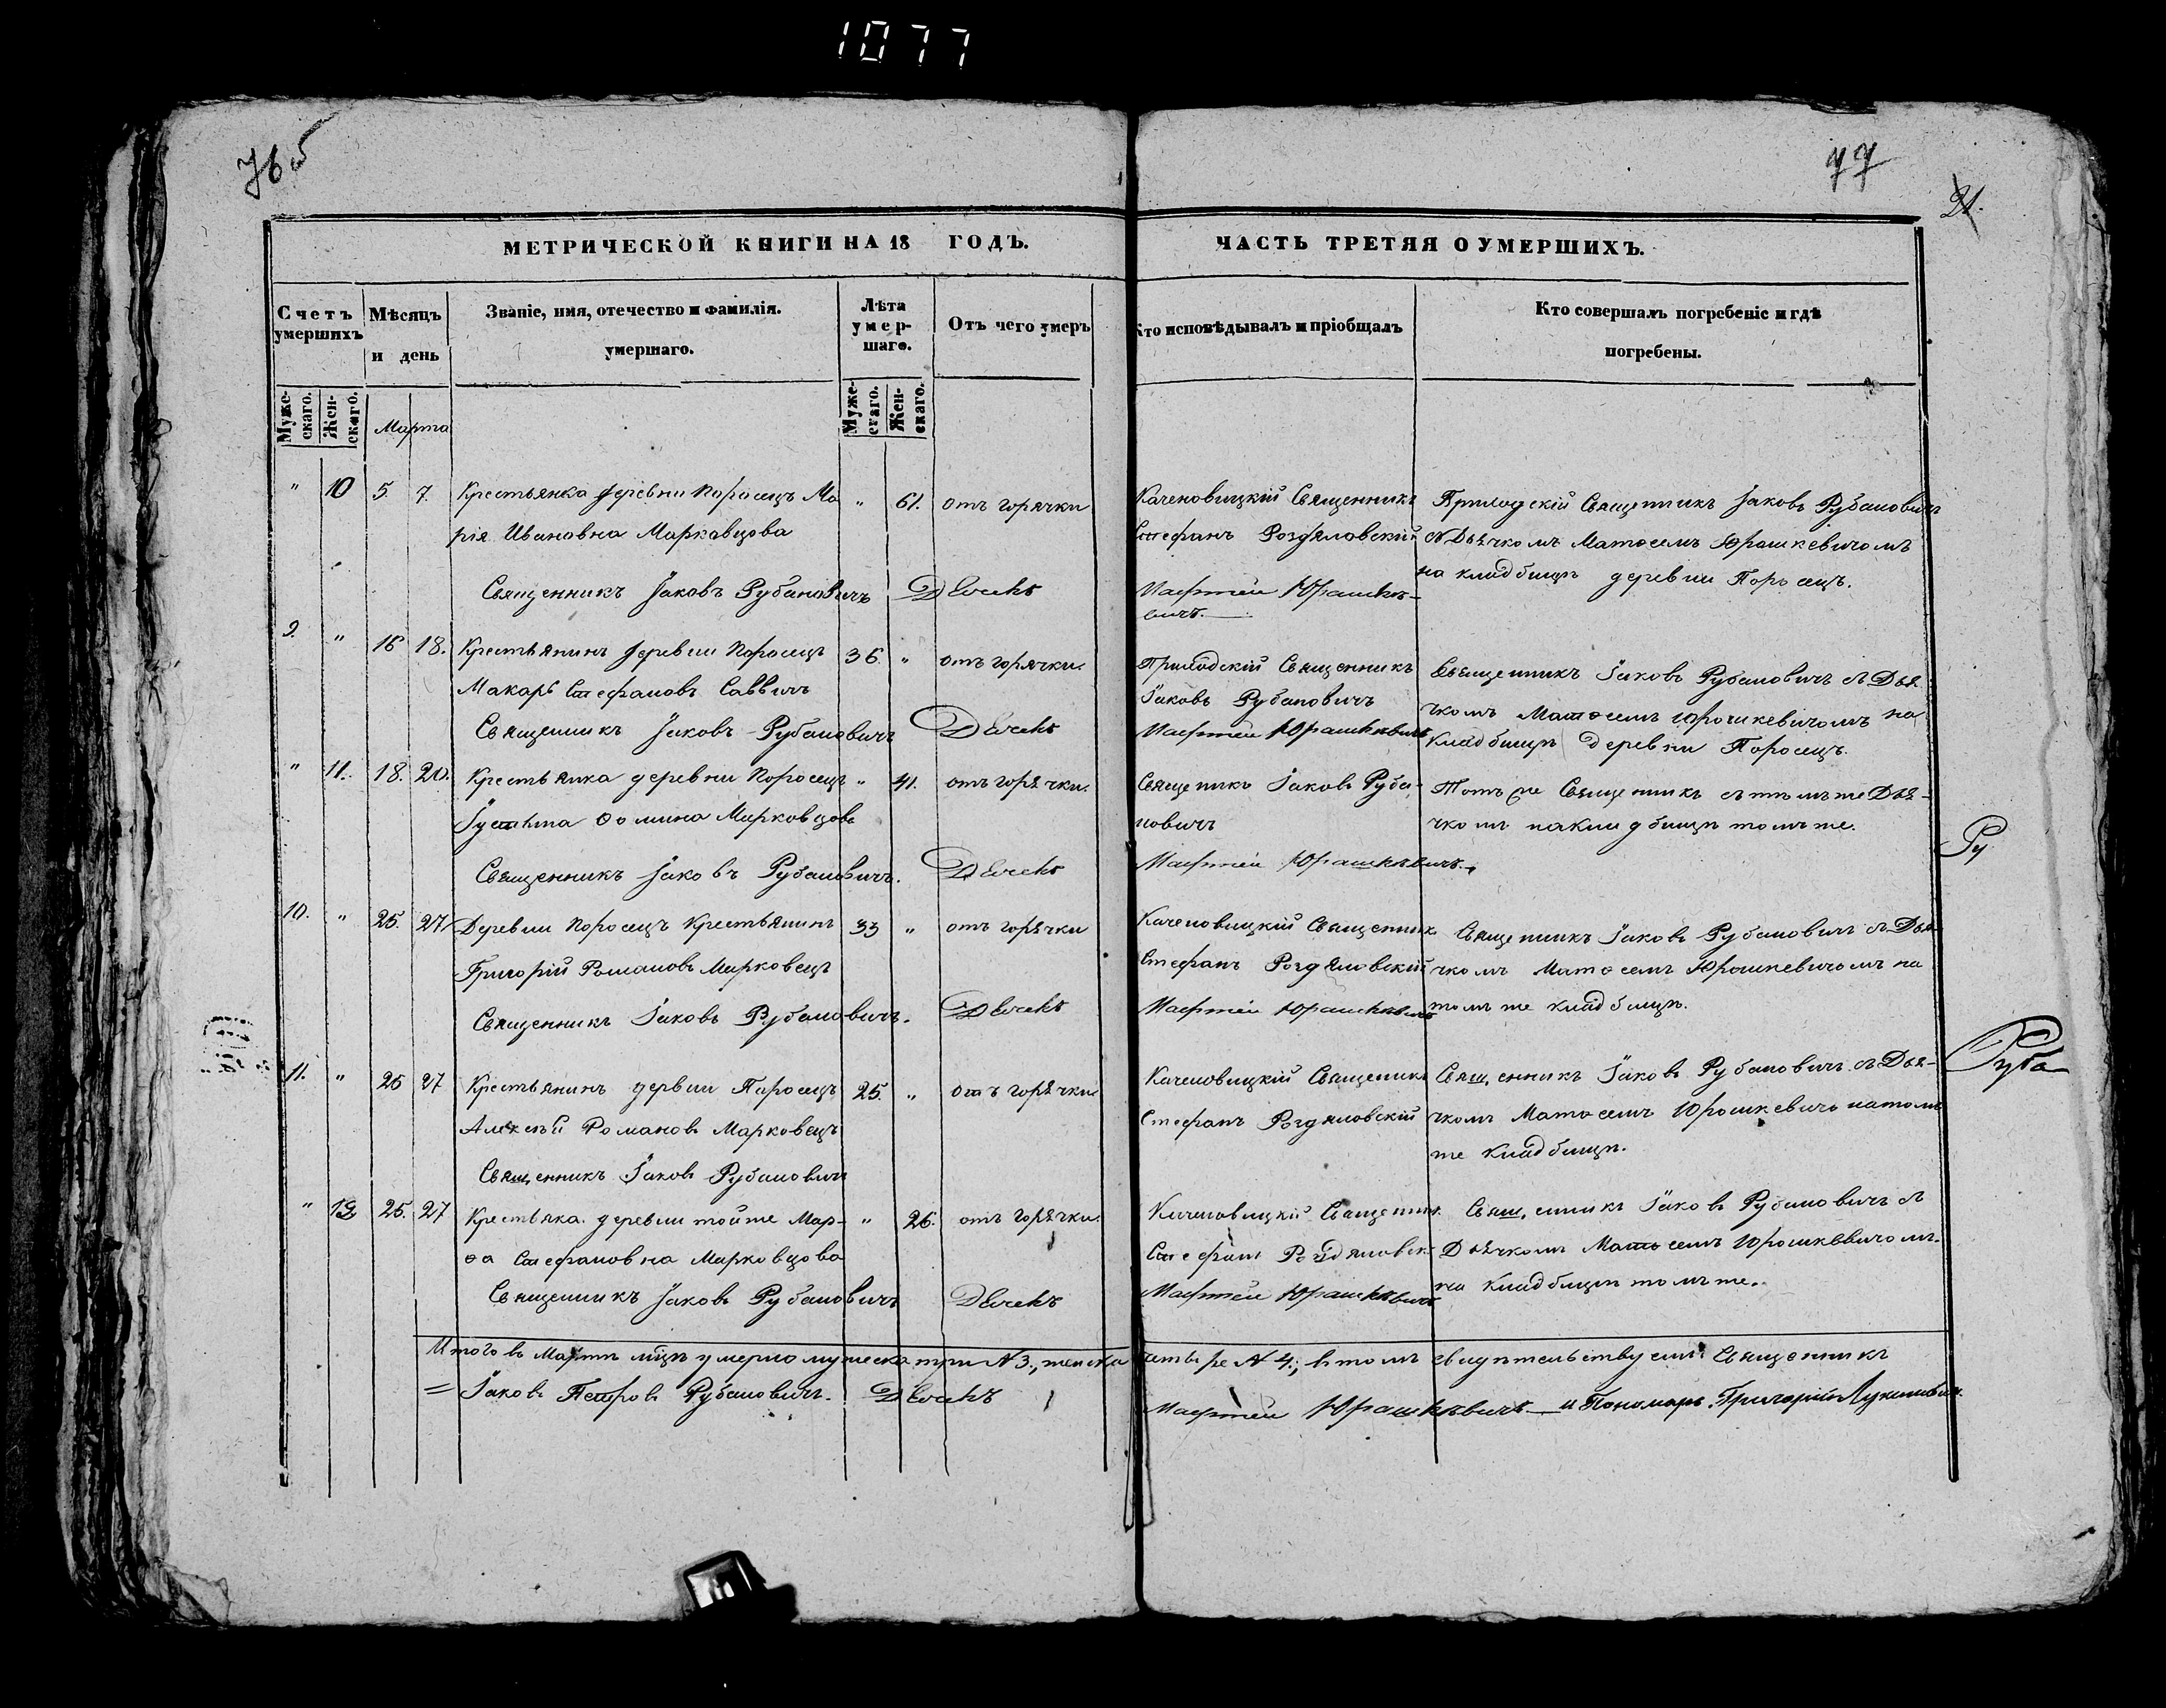 1077
76 об
77
21.
МЕТРИЧЕСКОЙ КНИГИ НА 18 ГОДЪ.
ЧАСТЬ ТРЕТЯЯ О УМЕРШИХЪ.
Счетъ умершихъ
Мѣсяцъ и день
Званіе, имя, отечество и фамилія. умершаго.
Лѣта умершаго.
Отъ чего умеръ
Кто исповѣдывалъ и пріобщалъ
Кто совершалъ погребеніе и гдѣ погребены.
Мужескаго. Женскаго.
Марта
Мужескаго. Женскаго.
" 10 5. 7. Крестьянка деревни Поросецъ Ма " 61. отъ горячки
рія Ивановна Марковцова
Священникъ Іаковъ Рубановичъ Дьячекъ
Каченовицкій Священникъ
Стефанъ Роздяловскій
Матфей Юрашкевичъ.
Приходскій Священникъ Іаковъ Рубановичъ
съ Дьячкомъ Матѳеемъ Юрашкевичомъ
на кладбищѣ деревни Поросецъ.
9. " 16 18. Крестьянинъ деревни Поросецъ 36. " отъ горячки.
Макарь Стефановъ Саввичъ
Священникъ Іаковъ Рубановичъ Дьячекъ
Приходскій Священникъ
Іаковъ Рубановичъ
Матфей Юрашкевичъ
Священникъ Іаковъ Рубановичъ съ Дья
чкомъ Матѳеемъ Юрошкевичомъ на
кладбищѣ деревни Поросецъ.
" 11. 18. 20. Крестьянка деревни Поросецъ " 41. отъ горячки.
Ѳомина Марковцова
Священникъ Іаковъ Рубановичъ. Дьячекъ
Священикъ Іаковъ Руба-
новичъ
Матфей Юрашкевичъ.
Тотъ же Священникъ съ тѣмъ же Дья-
чкомъ на кладбищѣ томъ же.
Ру
10. " 25. 27 Деревни Поросецъ Крестьянинъ 33 " отъ горячки
Григорій Романовъ Марковецъ
Священникъ Іаковъ Рубановичъ. Дьячекъ
Каченовицкій Священник
Стефанъ Роздяловскій
Матфей Юрашкевичъ
Священникъ Іаковъ Рубановичъ съ Дья
чкомъ Матѳеемъ Юрошкевичомъ на
томъ же кладбищѣ.
11. " 25 27 Крестьянинъ дервни Поросецъ 25. " отъ горячки
Алексѣй Романовъ Марковецъ
Священникъ Іаковъ Рубановичъ
Каченовицкій Священикъ
Стефанъ Роздяловскій
Священникъ Іаковъ Рубановичъ съ Дья-
чкомъ Матѳеемъ Юрошкевичо на томъ
же кладбищѣ.
Руба
" 12 25. 27 Крестьяка деревни тойже Мар- " 26. отъ горячки.
ѳа Стефановна Марковцова
Священникъ Іаковъ Рубановичъ Дьячекъ
Каченовицкій Священник
Стефанъ Роздяловск
Матфей Юрашкевичъ
Священникъ Іаковъ Рубановичъ съ
Дьячкомъ Матѳеемъ Юрошкевичомъ.
на кладбищѣ томъ же.
Итого въ Мартѣ мцѣ умерло мужеска три № 3., женска четыре № 4.; въ томъ свидѣтельствуемъ Священникъ
= Іаковъ Петровъ Рубановичъ. Дьячекъ Матфей Юрашкевичъ и Пономарь Григорій